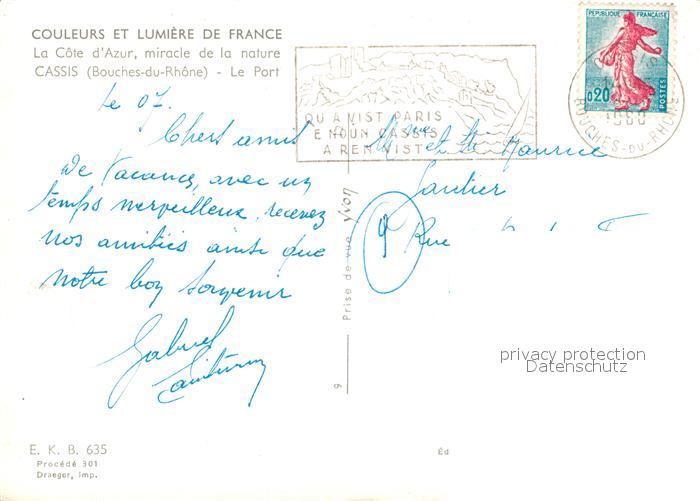 COULEURS ET LUMIÈRE DE FRANCE
La Côte d'Azur, miracle de la nature
CASSIS (Bouches-du-Rhône) - Le Port
Le 07.
Chers amis
De Vacances, avec un
temps merveilleux, recevez
nos amitiés ainsi que
notre bon souvenir
Gabriel
E. K. B. 635
Procédé 301
Draeger, imp.
QU A VIST PARIS
E NOUN CASSIS
A REN VIST
REPUBLIQUE FRANÇAISE
0,20
POSTES
1960
BOUCHES-DU-RHÔNE
et Maurice
Gautier
9 Rue
Prise de vue Yvon
6
Éd
privacy protection
Datenschutz